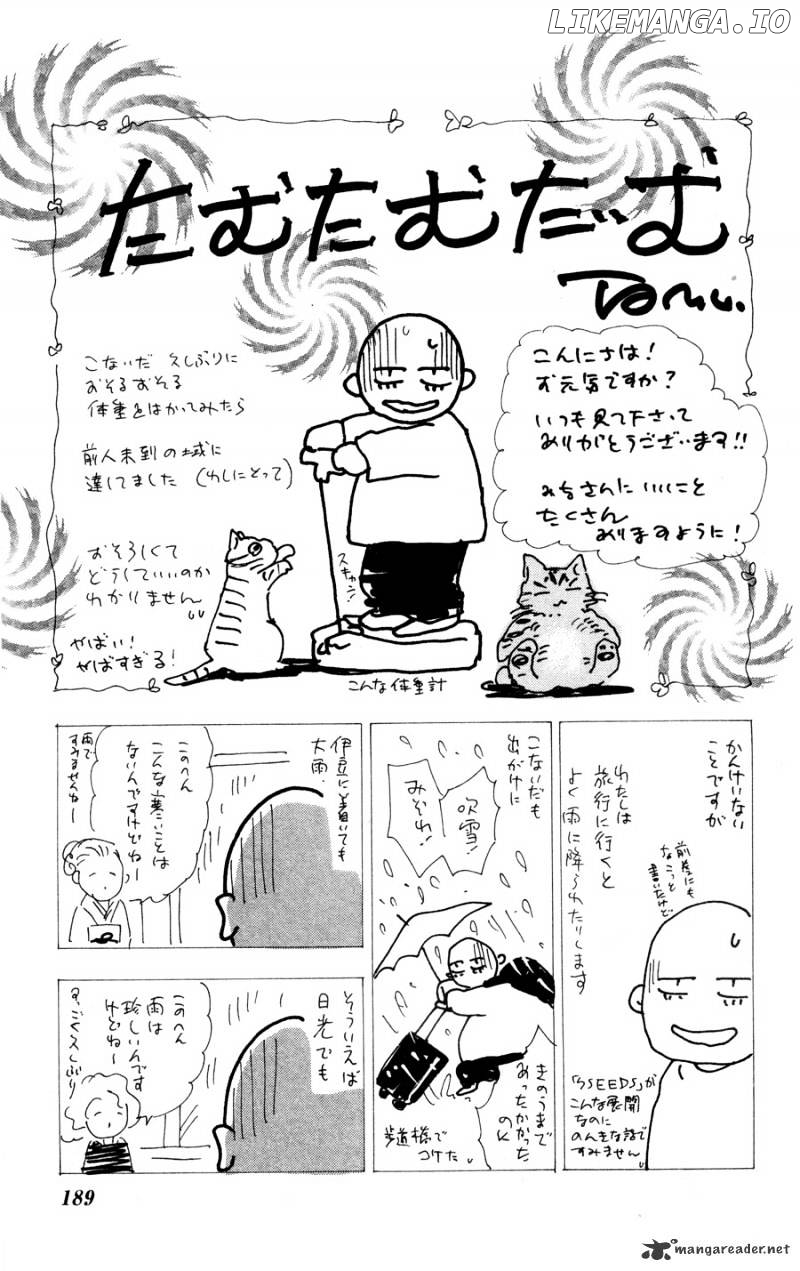 LIKEMANGA.IO
たむたむだーむ
Tamu.
こないだ 久しぶりに
おそるおそる
体重をはかってみたら
前人未到の域に
達してました (わしにとって)
おそろしくて
どうしていいのか
わかりません
やばい!
やばすぎる!
スキャン!
こんな体重計
こんにちは!
お元気ですか?
いつも見て下さって
ありがとうございます!!
みなさんにいいこと
たくさん
ありますように!
かんけいない
ことですが
わたしは
旅行に行くと
よく雨に降られたりします
前巻にも
ちょこっと
書いたけど
「7SEEDS」が
こんな展開
なのに
のんきな話で
すみません
こないだも
出がけに
吹雪!
みぞれ!
きのうまで
あったかかった
のに
歩道橋で
コケた
伊豆に着いても
大雨.
このへん
こんな寒いことは
ないんですけどねー
雨で
すみませんねー
そういえば
日光でも
このへん
雨は
珍しいんです
けどねー
すっごく久しぶり
189
mangareader.net